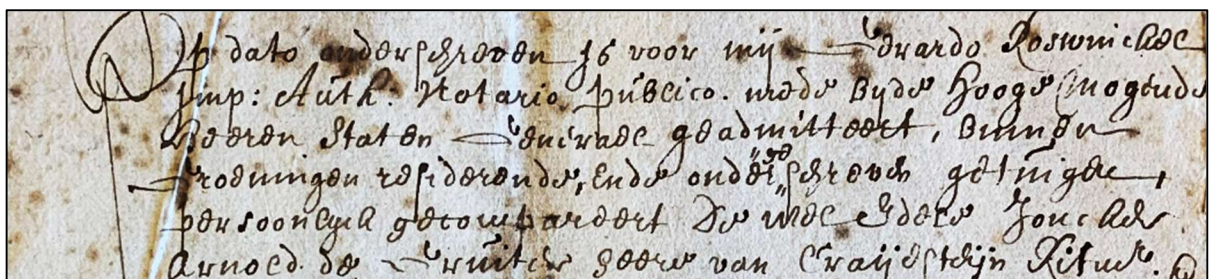 Op dato onderschreven is voor mij Gerardo Roswinckel
Imp: Auth. Notario publico. mede byde Hooge Mogende
Heeren Staten Generael geadmitteert, binnen
Groeningen residerende, Ende onderschreven getuigen,
persoonlyck gecompareert De Wel Edele Joncker
Arnold de Gruiter heere van Craijesteijn